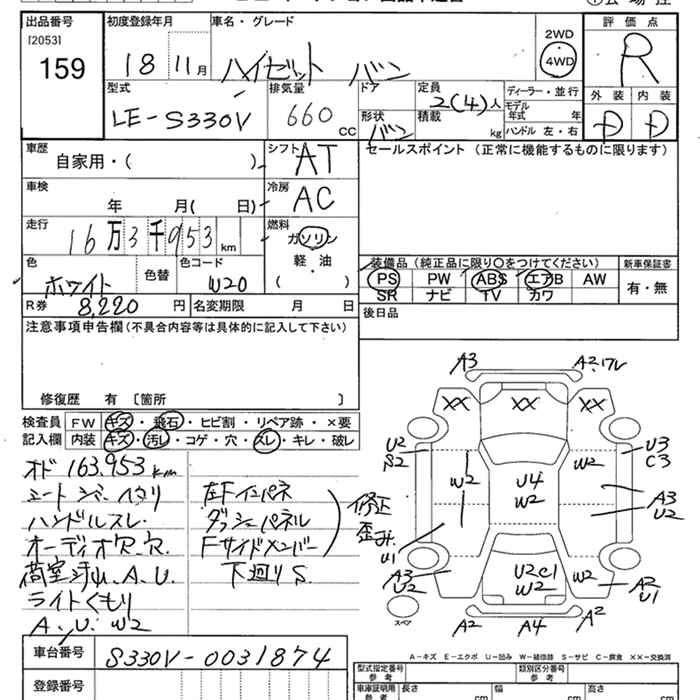 出品番号
[2053]
159
初度登録年月
18 11月
車名・グレード
ハイゼット バン
2WD
4WD
評価点
R
外装 内装
D D
型式
LE-S330V
排気量
660 CC
ドア
形状
バン
定員
2(4)人
積載 kg
ディーラー・並行
モデル年式 年
ハンドル 左・右
車歴
自家用・( )
シフト AT
セールスポイント (正常に機能するものに限ります)
車検
年 月( 日)
冷房 AC
走行
16万3千953km
燃料
ガソリン
軽・油
( )
色
ホワイト
色替
色コード
W20
装備品 (純正品に限り○をつけてください)
PS PW ABS エアB AW
SR ナビ TV カワ
新車保証書
有・無
R券 8,220 円
名変期限 月 日
後日品
注意事項申告欄(不具合内容等は具体的に記入して下さい)
修復歴 有 〔箇所 〕
検査員 FW キズ・飛石・ヒビ割・リペア跡・×要
記入欄 内装 キズ・汚レ・コゲ・穴・スレ・キレ・破レ
オド 163,953km
シートシミ、ヘタリ
ハンドルスレ.
オーディオ欠.穴.
荷室 A.U.
ライトくもり
A.U. W2
左Fインパネ
ダッシュパネル
Fサイドメンバー
修正
歪み.
下廻りS.
A3 A2.ワレ
XX XX XX
U2
S2
W2
U4
W2
W2
U3
C3
A3
U2
U1
A3
U2
U2C1
W2
W2
A2
U1
スペア
A2 A4 A2
A-キズ E-エクボ U-凹み W-補修跡 S-サビ C-腐食 XX-交換済
車台番号
S330V-0031874
登録番号
型式指定番号
参考
類別区分番号
参考
車庫証明用
参考
長さ cm
幅 cm
高さ cm